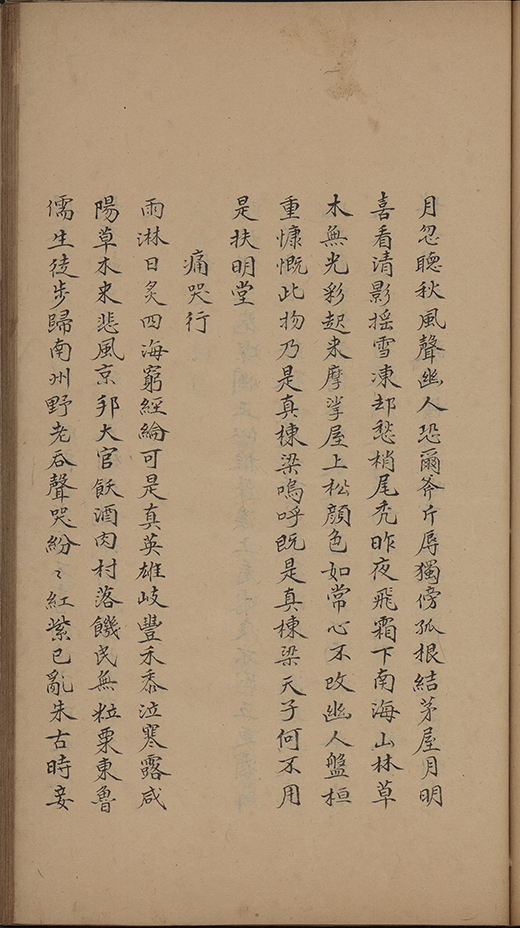 月忽聽秋風聲幽人恐爾斧斤辱獨傍孤根結茅屋月明
喜看清影揺雪凍却愁梢尾禿昨夜飛霜下南海山林草
木無光彩起来摩挲屋上松顔色如常心不改幽人盤桓
重慷慨此物乃是真棟梁嗚呼既是真棟梁天子何不用
是扶明堂
痛哭行
雨淋日炙四海窮經綸可是真英雄岐豐禾黍泣寒露咸
陽草木来悲風京邦大官飫酒肉村落饑民無粒粟東魯
儒生徒步歸南州野老吞聲哭紛〻紅紫已亂朱古時妾